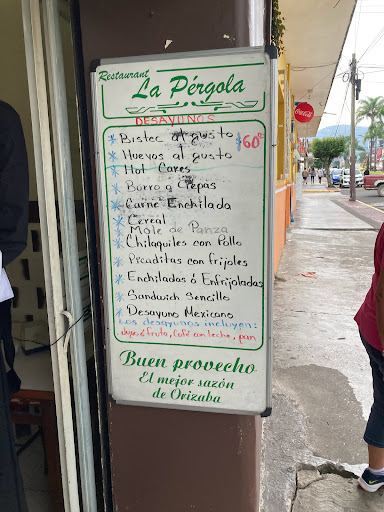 Restaurant
La Pérgola
DESAYUNOS
* Bistec al gusto $60.
* Huevos al gusto
* Hot Cakes
* Burro o Crepas
* Carne Enchilada
* Cereal
Mole de Panza
* Chilaquiles con Pollo
* Picaditas con frijoles
* Enchiladas ó Enfrijoladas
* Sandwich Sencillo
* Desayuno Mexicano
Los desayunos incluyen:
Jugo ó fruta, Café con leche, pan
Buen provecho
El mejor sazón
de Orizaba
Coca-Cola